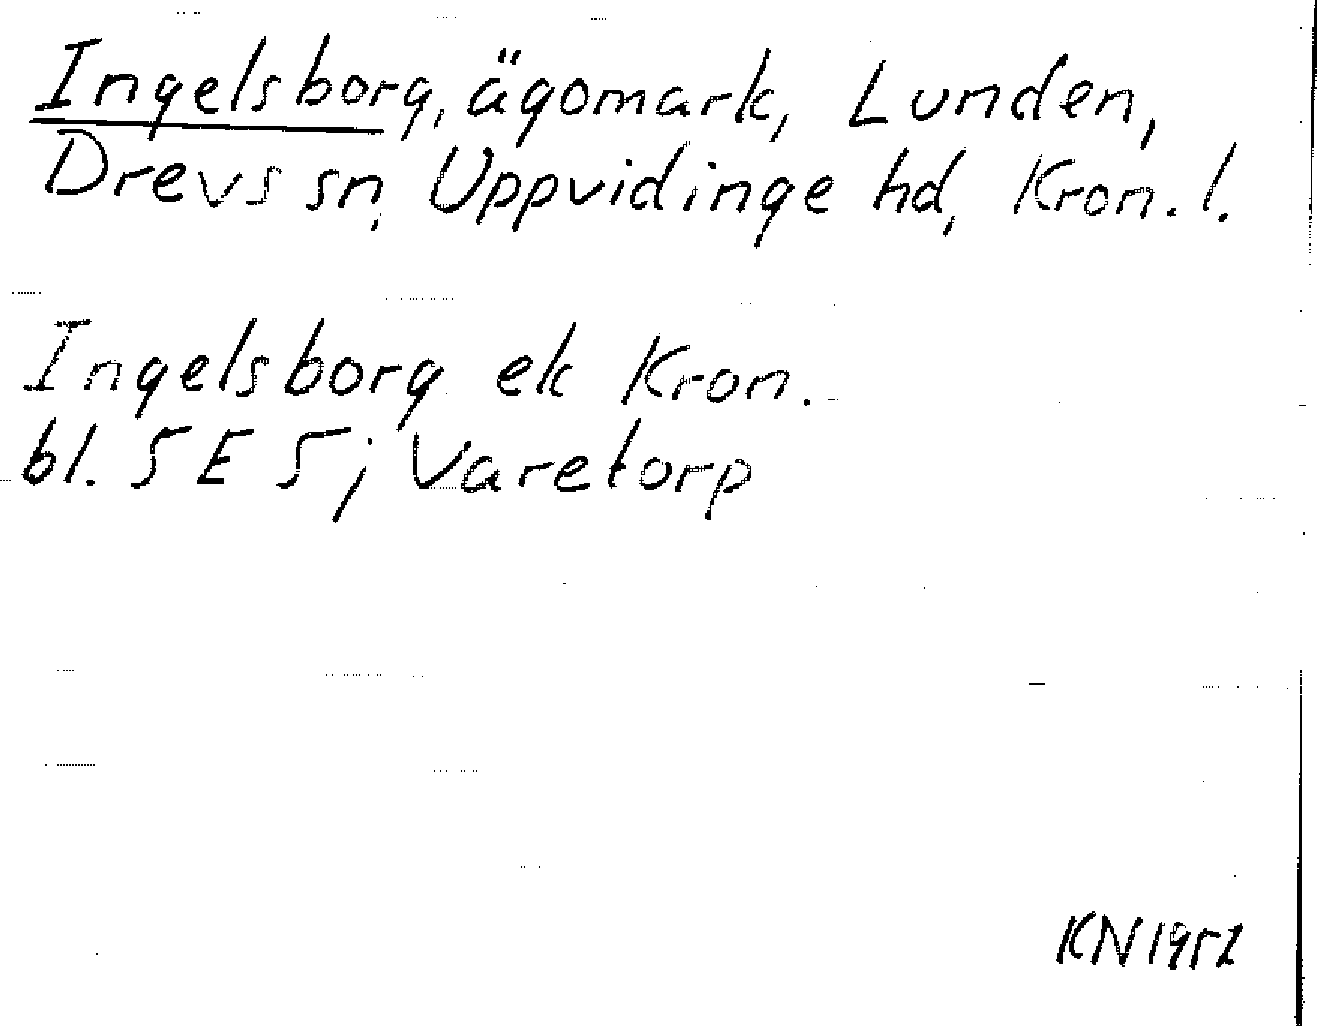 Ingelsborg, ägomark, Lunden,
Drevs sn, Uppvidinge hd, Kron. l.
Ingelsborg ek Kron.
bl. 5 E 5; Varetorp
KN 1952